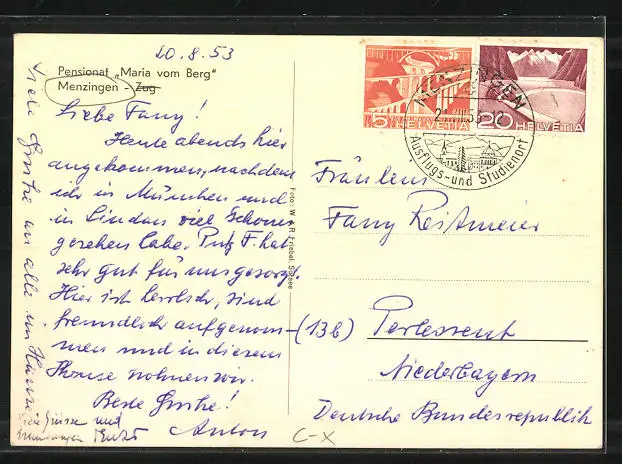 20.8.53
Pensionat „Maria vom Berg“
Menzingen - Zug
Liebe Fanny!
Heute abends hier
angekommen, nachdem
ich in München und
in Lindau viel Schönes
gesehen habe. F. hat
sehr gut für uns gesorgt.
Hier ist herrlich, sind
freundlich aufgenom-
men und in diesem
Hause wohnen wir.
Beste Grüße!
Anton
Viele Grüße an alle im Hause
Viele Grüsse und
C-X
Foto: W & R Friebel, Sursee
5 HELVETIA
20 HELVETIA
MENZINGEN
Ausflugs- und Studienort
Fräulein
Fanny Reitmeier
(13b) Perlesreut
Niederbayern
Deutsche Bundesrepublik